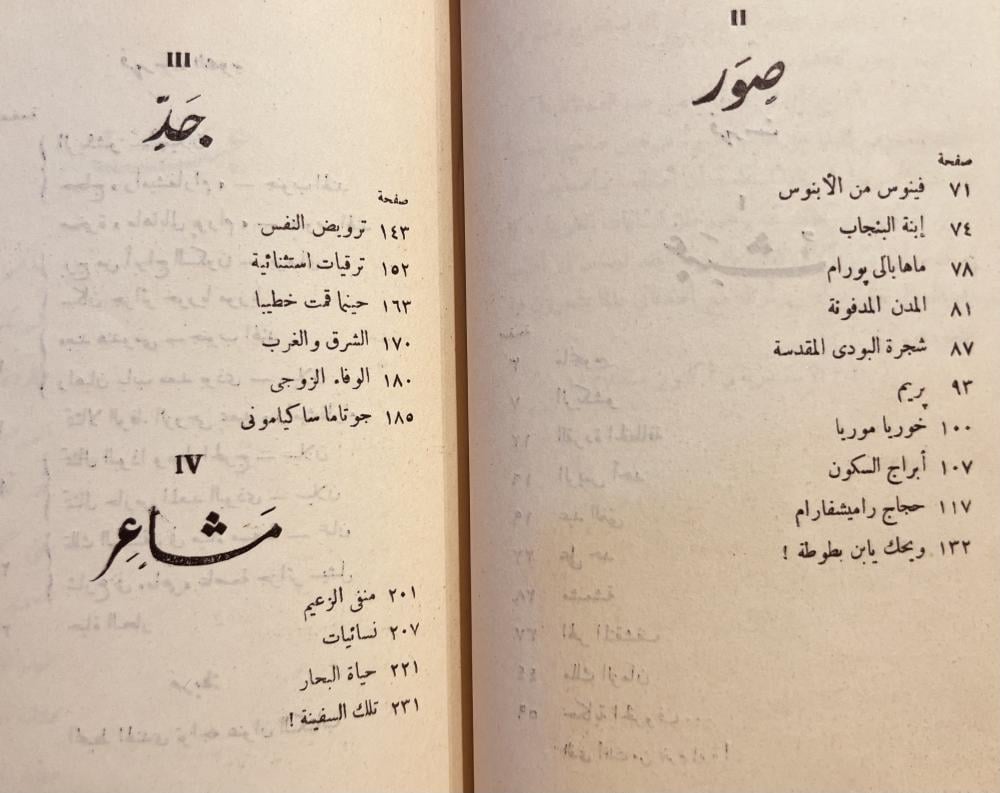 II
صِوَر
صفحة
٧١ فينوس من الأبنوس
٧٤ إبنة البنجاب
٧٨ ماهابالى پورام
٨١ المدن المدفونة
٨٧ شجرة البودى المقدسة
٩٣ پريم
١٠٠ خوريا موريا
١٠٧ أبراج السكون
١١٧ حجاج راميشفارام
١٣٢ ويحك يابن بطوطة !
III
جَدِّ
صفحة
١٤٣ ترويض النفس
١٥٢ ترقيات استثنائية
١٦٣ حينما قمت خطيبا
١٧٠ الشرق والغرب
١٨٠ الوفاء الزوجى
١٨٥ جوتاما ساكيامونى
IV
مَشَاعِر
٢٠١ منفى الزعيم
٢٠٧ نسائيات
٢٢١ حياة البحار
٢٣١ تلك السفينة !